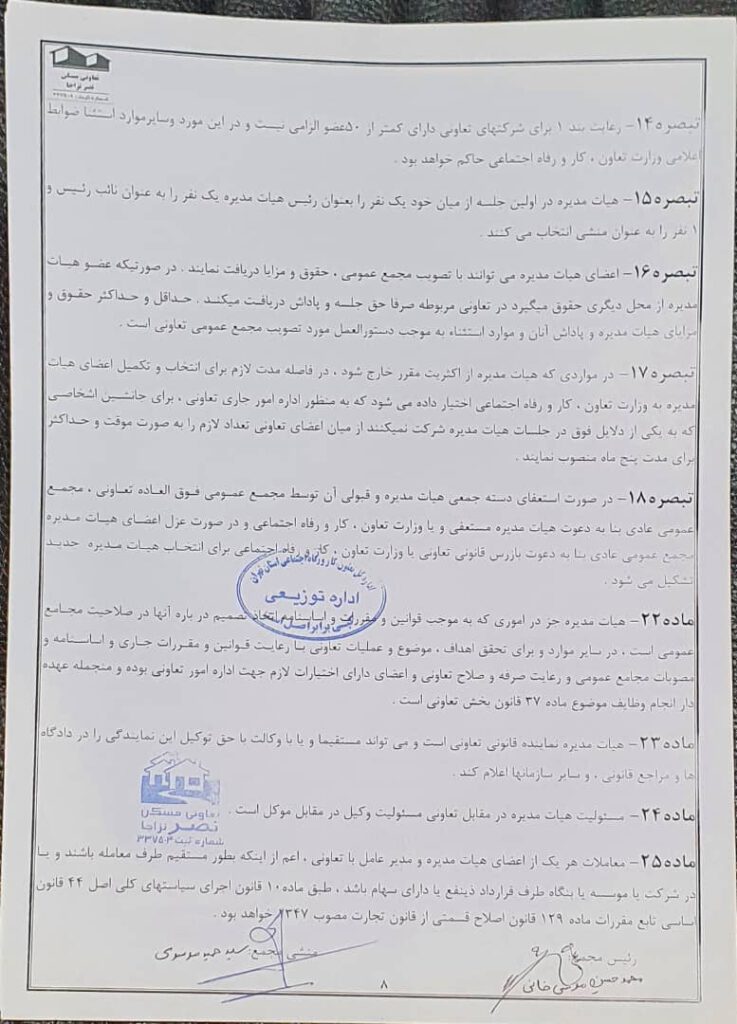 تعاونی مسکن
نصر نزاجا
تبصره۱۴- رعایت بند ۱ برای شرکتهای تعاونی دارای کمتر از ۵۰عضو الزامی نیست و در این مورد وسایرموارد استثنا ضوابط
اعلامی وزارت تعاون ، کار و رفاه اجتماعی حاکم خواهد بود .
تبصره۱۵- هیات مدیره در اولین جلسه از میان خود یک نفر را بعنوان رئیس هیات مدیره یک نفر را به عنوان نائب رئیس و
۱ نفر را به عنوان منشی انتخاب می کنند .
تبصره۱۶- اعضای هیات مدیره می توانند با تصویب مجمع عمومی ، حقوق و مزایا دریافت نمایند . در صورتیکه عضو هیات
مدیره از محل دیگری حقوق میگیرد در تعاونی مربوطه صرفا حق جلسه و پاداش دریافت میکند . حداقل و حداکثر حقوق و
مزایای هیات مدیره و پاداش آنان و موارد استثناء به موجب دستورالعمل مورد تصویب مجمع عمومی تعاونی است .
تبصره۱۷- در مواردی که هیات مدیره از اکثریت مقرر خارج شود ، در فاصله مدت لازم برای انتخاب و تکمیل اعضای هیات
مدیره به وزارت تعاون ، کار و رفاه اجتماعی اختیار داده می شود که به منظور اداره امور جاری تعاونی ، برای جانشین اشخاصی
که به یکی از دلایل فوق در جلسات هیات مدیره شرکت نمیکنند از میان اعضای تعاونی تعداد لازم را به صورت موقت و حداکثر
برای مدت پنج ماه منصوب نمایند .
تبصره۱۸- در صورت استعفای دسته جمعی هیات مدیره و قبولی آن توسط مجمع عمومی فوق العاده تعاونی ، مجمع
عمومی عادی بنا به دعوت هیات مدیره مستعفی و یا وزارت تعاون ، کار و رفاه اجتماعی و در صورت عزل اعضای هیات مدیره
مجمع عمومی عادی بنا به دعوت بازرس قانونی تعاونی یا وزارت تعاون ، کار و رفاه اجتماعی برای انتخاب هیات مدیره جدید
تشکیل می شود .
اداره توزیعی
ماده۲۲- هیات مدیره جز در اموری که به موجب قوانین و مقررات و اساسنامه اتخاذ تصمیم در باره آنها در صلاحیت مجامع
عمومی است ، در سایر موارد و برای تحقق اهداف ، موضوع و عملیات تعاونی با رعایت قوانین و مقررات جاری و اساسنامه و
مصوبات مجامع عمومی و رعایت صرفه و صلاح تعاونی و اعضای دارای اختیارات لازم جهت اداره امور تعاونی بوده و منجمله عهده
دار انجام وظایف موضوع ماده ۳۷ قانون بخش تعاونی است .
ماده۲۳- هیات مدیره نماینده قانونی تعاونی است و می تواند مستقیما و یا با وکالت با حق توکیل این نمایندگی را در دادگاه
ها و مراجع قانونی ، و سایر سازمانها اعلام کند .
ماده۲۴- مسئولیت هیات مدیره در مقابل تعاونی مسئولیت وکیل در مقابل موکل است .
تعاونی مسکن
نصر نزاجا
شماره ثبت ۳۳۷۵۰۳
ماده۲۵- معاملات هر یک از اعضای هیات مدیره و مدیر عامل با تعاونی ، اعم از اینکه بطور مستقیم طرف معامله باشند و یا
در شرکت یا موسسه یا بنگاه طرف قرارداد ذینفع یا دارای سهام باشد ، طبق ماده۱۰ قانون اجرای سیاستهای کلی اصل ۴۴ قانون
اساسی تابع مقررات ماده ۱۲۹ قانون اصلاح قسمتی از قانون تجارت مصوب ۱۳۴۷ خواهد بود .
رئیس مجمع:
منشی مجمع: سید حمید موسوی
۸